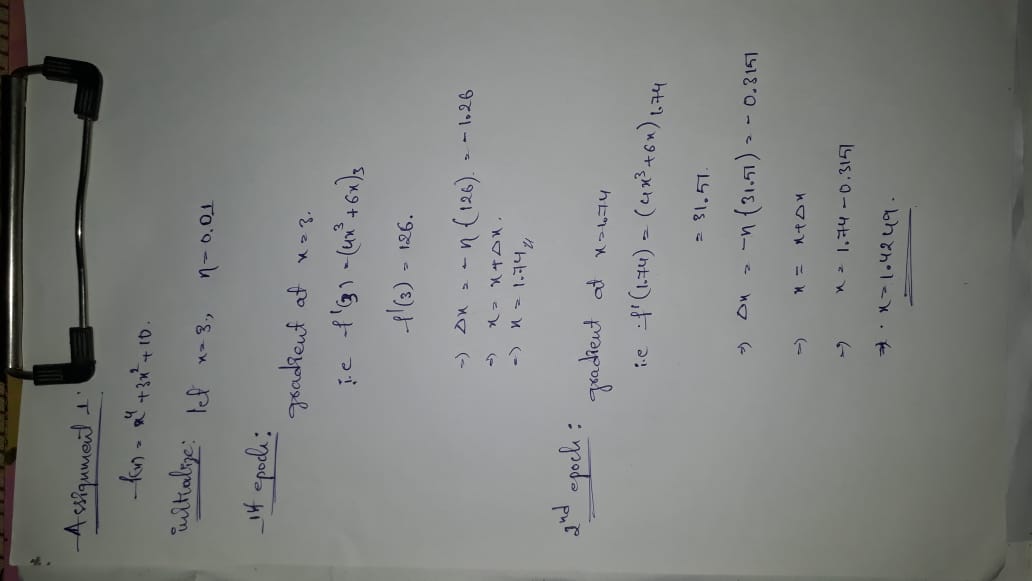 Assignment 1.
f(x) = x⁴ + 3x² + 10.
initialize: let x = 3, η = 0.01
1st epoch:
gradient at x = 3.
i.e f'(3) = (4x³ + 6x)₃
f'(3) = 126.
=> Δx = -η(126) = -1.26
=> x = x + Δx.
=> x = 1.74
2nd epoch:
gradient at x = 1.74
i.e f'(1.74) = (4x³ + 6x)₁.₇₄
= 31.51.
=> Δx = -η(31.51) = -0.3151
=> x = x + Δx
=> x = 1.74 - 0.3151
=> x = 1.4249.